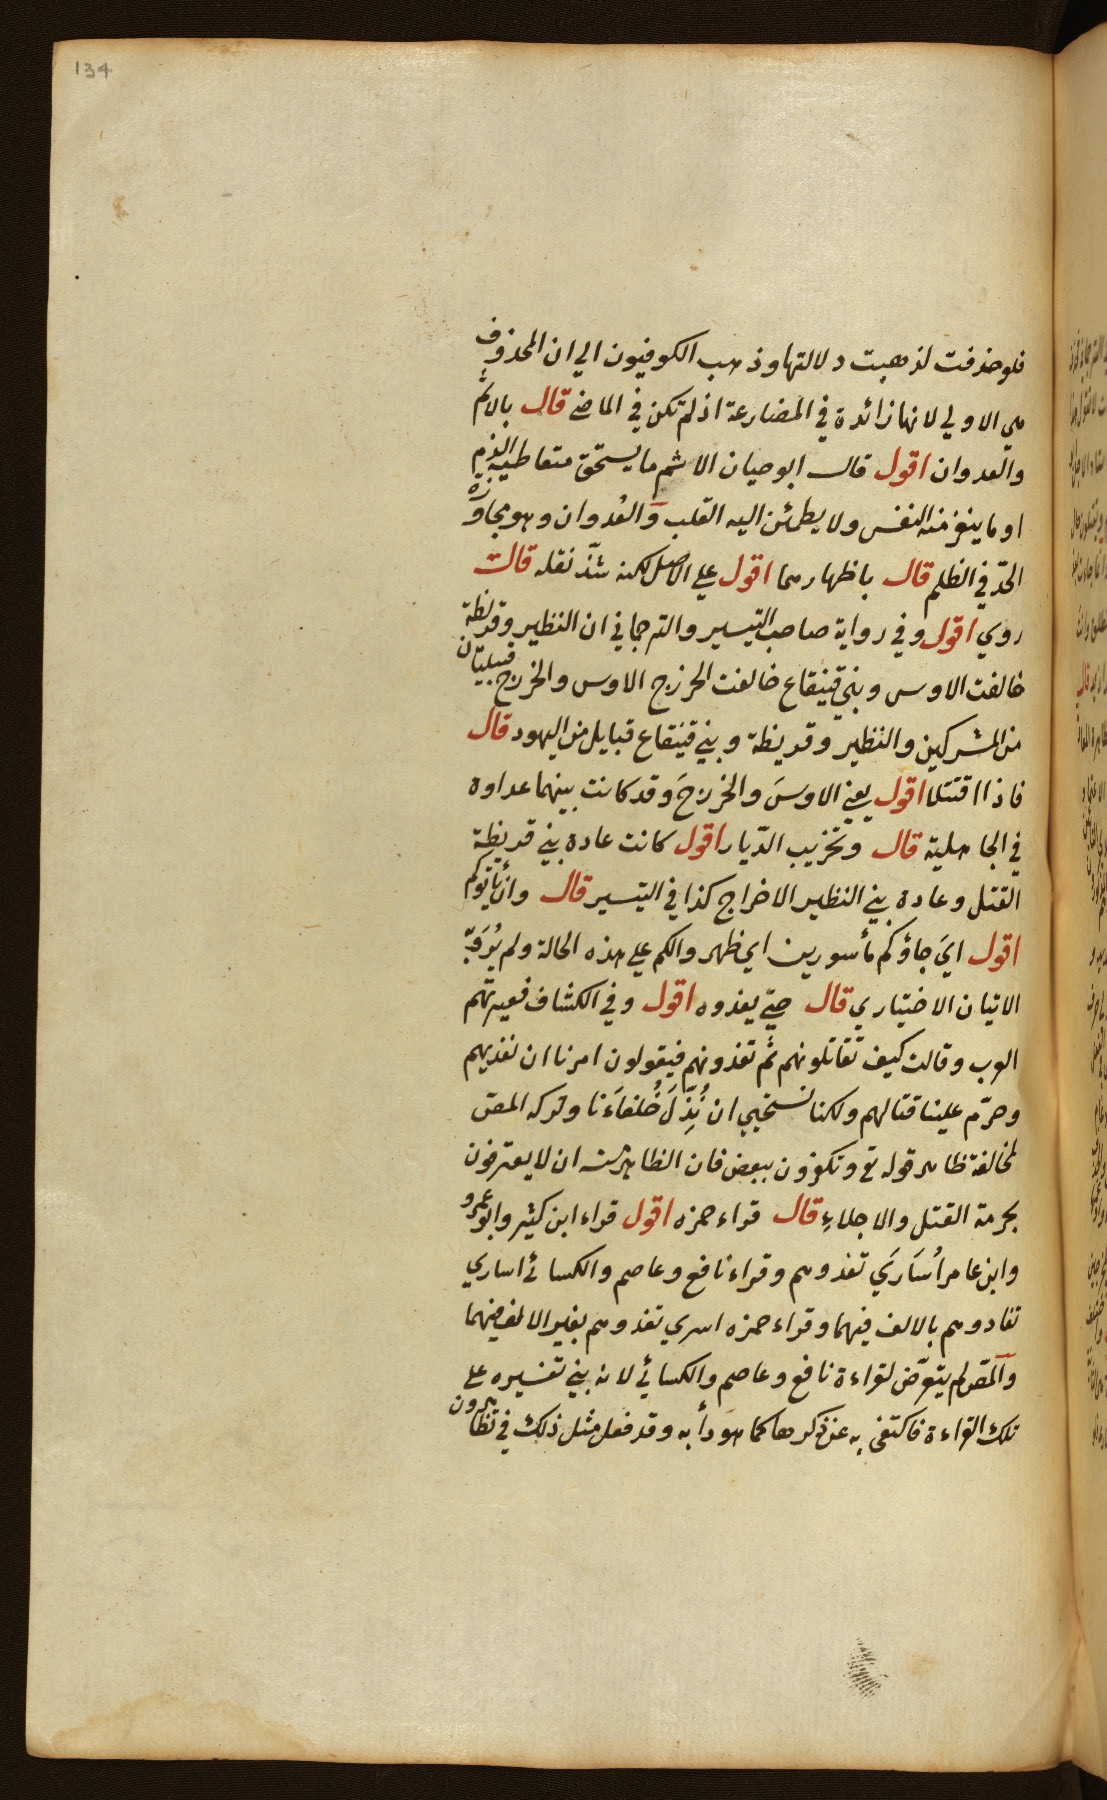 134
فلو حذفت لذهبت دلالتها وذهب الكوفيون الي ان المحذوف
هي الاولي لانها زائدة في المضارعة اذ لم تكن في الماضي قال بالاثم
والعدوان اقول قال ابو حيان الاثم ما يستحق متعاطيه الذم
او ما ينفر منه النفس ولا يطمئن اليه القلب والعُدوان وهو مجاوزة
الحدّ في الظلم قال باظهارهما اقول علي الاصل لكنه شذّ نقله قال
روي اقول وفي رواية صاحب التيسير والترجماني ان النظير وقريظة
خالفت الاوس وبني قينقاع خالفت الخزرج الاوس والخزرج قبيلتان
من المشركين والنظير وقريظة وبني قينقاع قبايل من اليهود قال
فاذا اقتتلا اقول يعني الاوسَ والخزرجَ وقد كانت بينهما عداوة
في الجاهلية قال وتخريب الدّيار اقول كانت عادة بني قريظة
القتل وعادة بني النظير الاخراج كذا في التيسير قال وان يأتوكم
اقول ايَ جاؤكم مأسورين اي ظهروا لكم علي هذه الحالة ولم يُرَد به
الاتيان الاختياري قال حتي يفدوه اقول وفي الكشاف فعيرتهم
العرب وقالت كيف تقاتلونهم ثم تفدونهم فيقولون امرنا ان نفديهم
وحرّم علينا قتالهم ولكنا نستحيي ان نُذِلَّ حُلفاءَنا وتركه المص
لمخالفة ظاهر قوله تع وتكفرون ببعض فان الظاهر منه ان لا يعترفون
بحرمة القتل والاجلاءِ قال قراء حمزه اقول قراء ابن كثير وابو عمرو
وابن عامر أُسَارَي تفدوهم وقراء نافع وعاصم والكسائي اساري
تفادوهم بالالف فيهما وقراء حمزه اسري تفدوهم بغير الالف فيهما
والمصّ لم يتعرّض لقراءة نافع وعاصم والكسائي لانه بني تفسيره علي
تلك القراءة فاكتفي به عن ذكرها كما هو دأبه وقد فعل مثل ذلك في تظاهرون